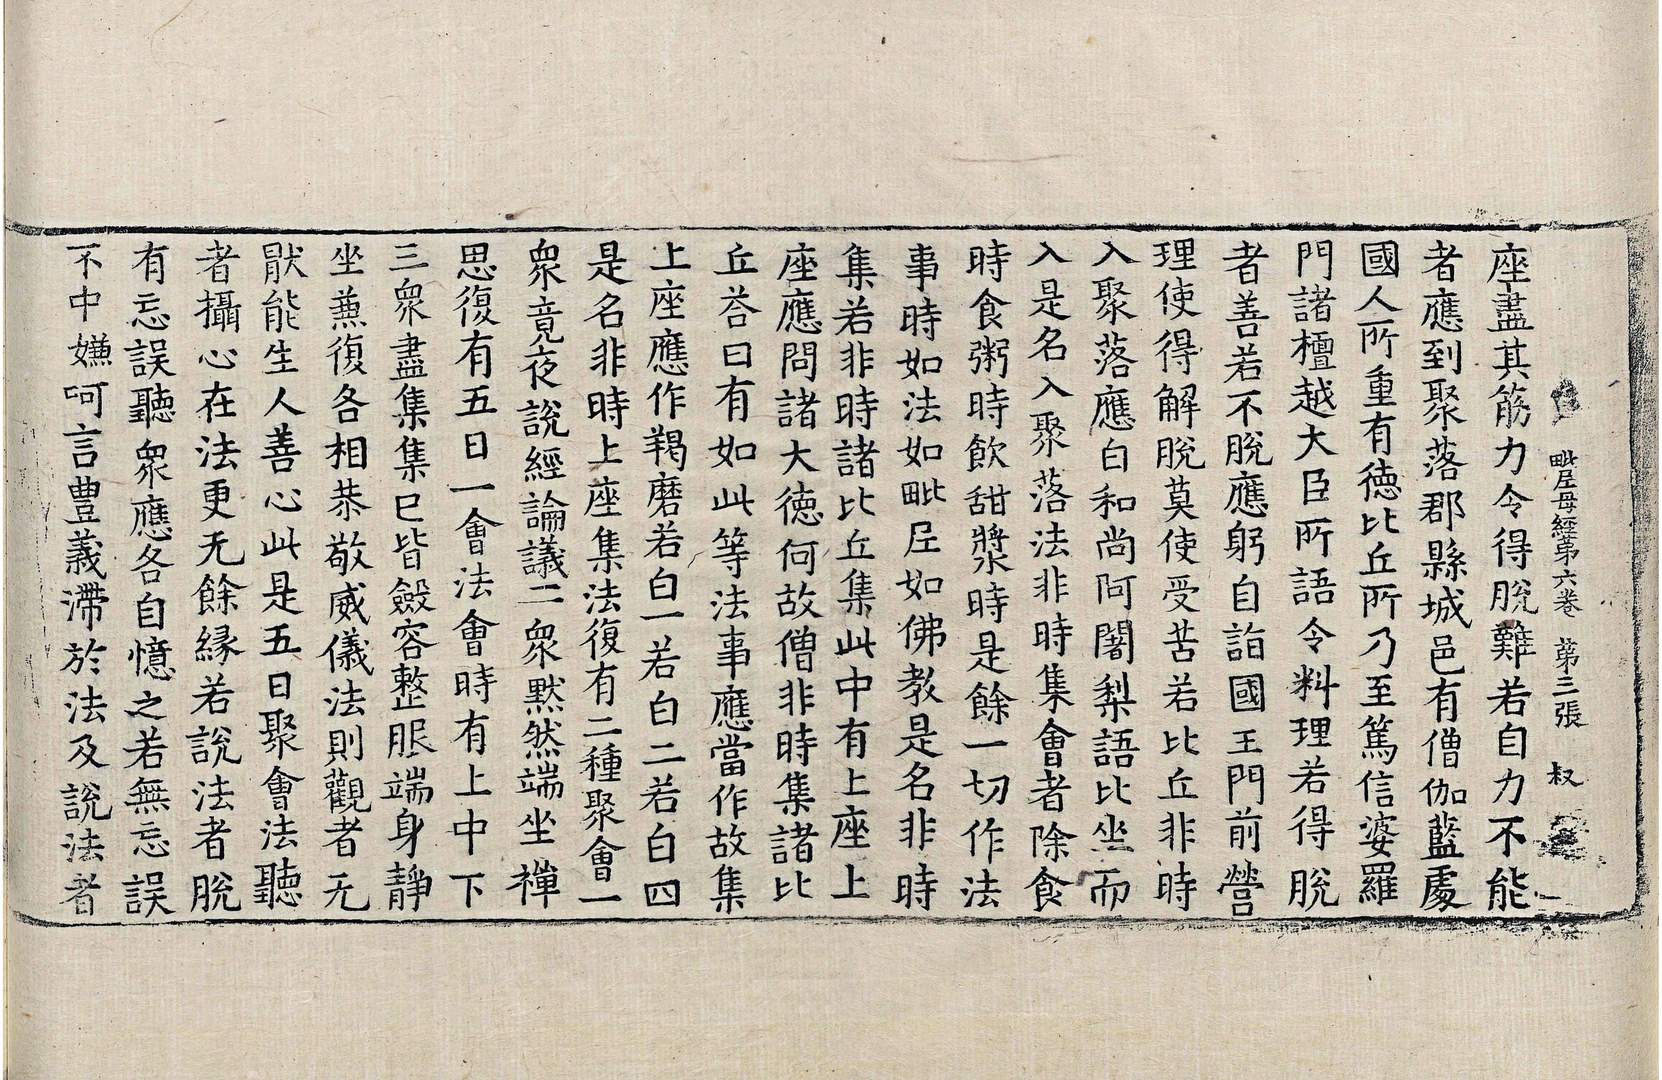 毗尼母經第六卷 第三張 叔
座盡其筋力令得脫難若自力不能
者應到聚落郡縣城邑有僧伽藍處
國人所重有德比丘所乃至篤信婆羅
門諸檀越大臣所語令料理若得脫
者善若不脫應躬自詣國王門前營
理使得解脫莫使受苦若比丘非時
入聚落應白和尚阿闍梨語比坐而
入是名入聚落法非時集會者除食
時食粥時飲甜漿時是餘一切作法
事時如法如毗尼如佛教是名非時
集若非時諸比丘集此中有上座上
座應問諸大德何故僧非時集諸比
丘荅曰有如此等法事應當作故集
上座應作羯磨若白一若白二若白四
是名非時上座集法復有二種聚會一
衆竟夜說經論議二衆默然端坐禪
思復有五日一會法會時有上中下
三衆盡集集已皆斂容整服端身靜
坐兼復各相恭敬威儀法則觀者无
猒能生人善心此是五日聚會法聽
者攝心在法更无餘緣若說法者脫
有忘誤聽衆應各自憶之若無忘誤
不中嫌呵言豊義滯於法及說法者